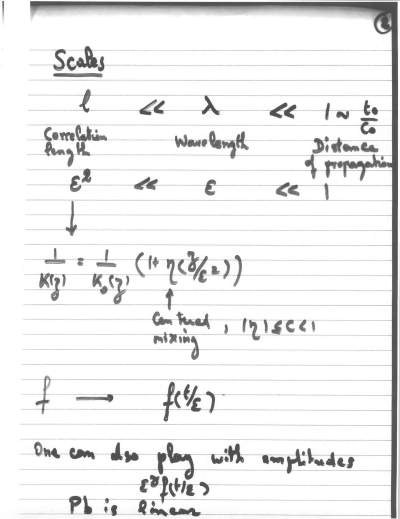 2
Scales
l << λ << 1 ~ t₀/C₀
Correlation length Wavelength Distance of propagation
ε² << ε << 1
↓
1/K(z) = 1/K₀(z) (1+ η(z/ε²))
↑
Centred mixing, |η| ≤ C < 1
f → f(t/ε)
One can also play with amplitudes
ε^γ f(t/ε)
Pb is linear